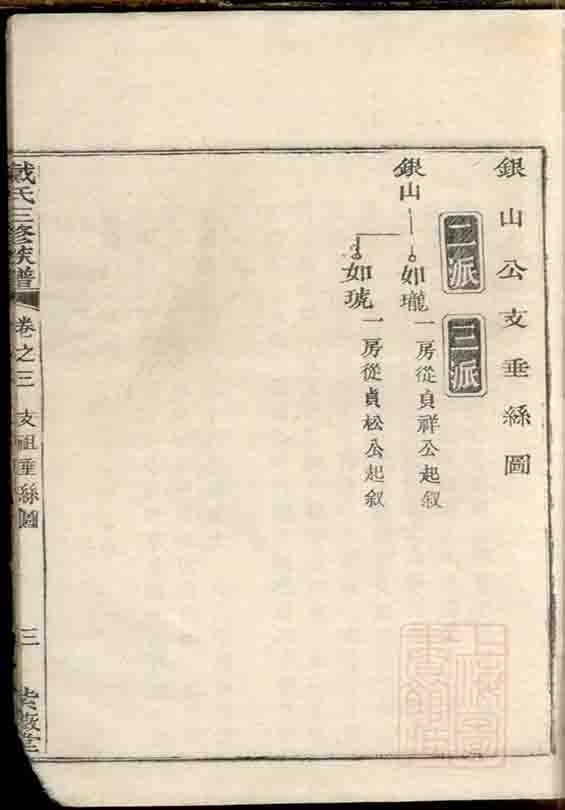 銀山公支垂絲圖
二派 三派
銀山
如瓏 一房從貞祥公起叙
如琥 一房從貞松公起叙
戴氏三修族譜 卷之三 支祖垂絲圖 三
上海圖書館藏